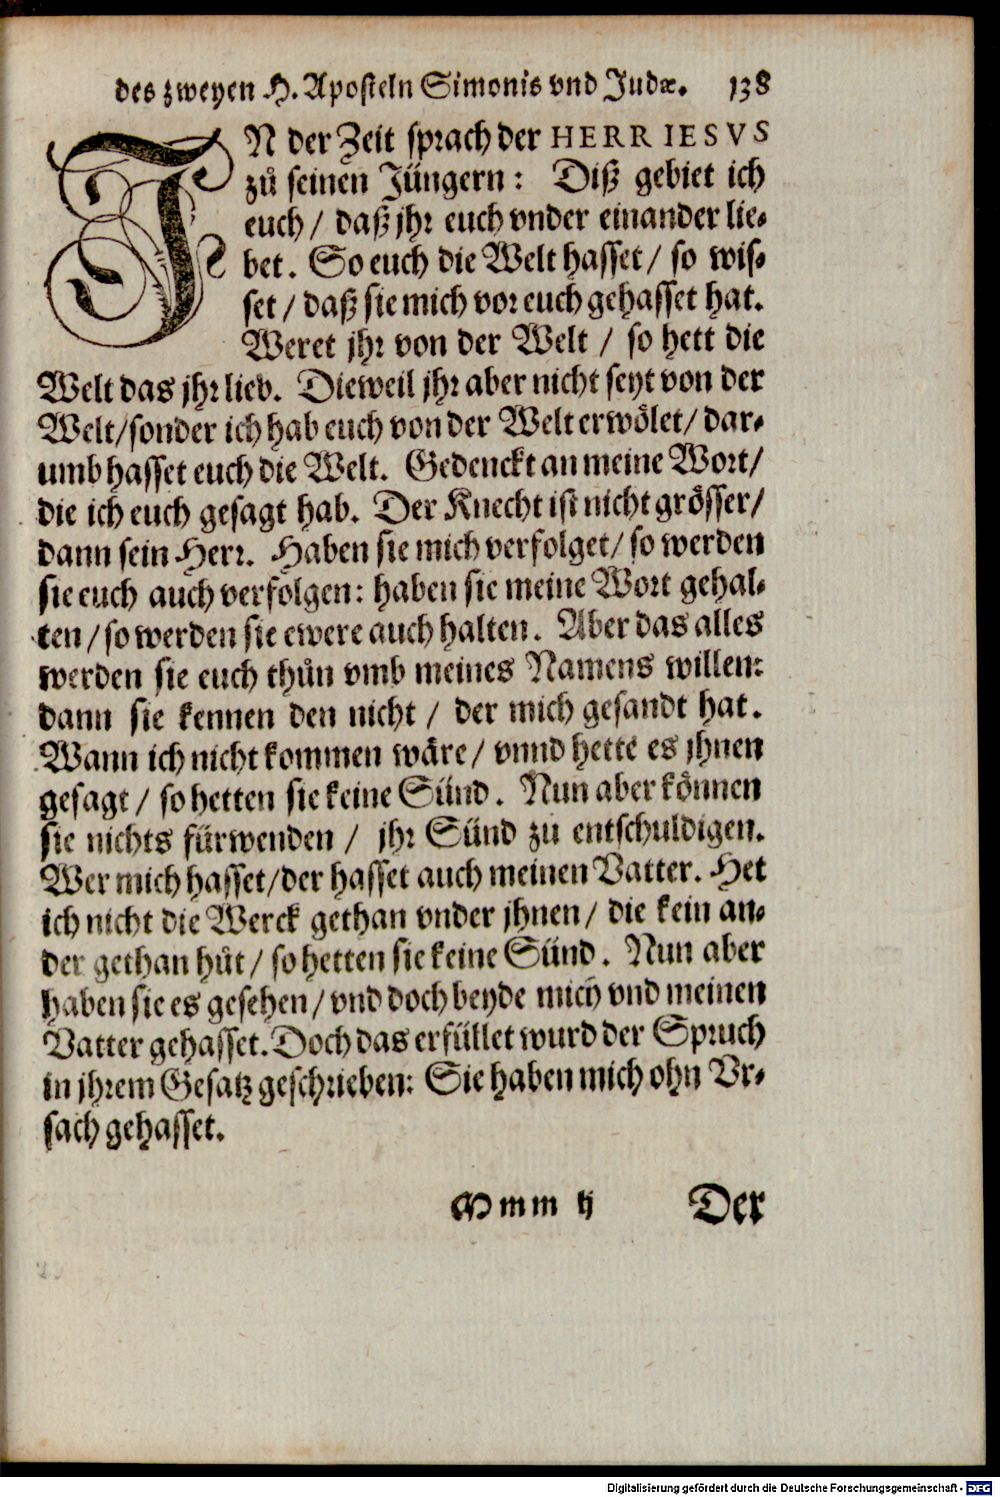 des zweyen H. Aposteln Simonis vnd Judæ. 138
IN der Zeit sprach der HERR IESVS
zů seinen Jüngern: Diß gebiet ich
euch / daß jhr euch vnder einander lie-
bet. So euch die Welt hasset / so wis-
set / daß sie mich vor euch gehasset hat.
Weret jhr von der Welt / so hett die
Welt das jhr lieb. Dieweil jhr aber nicht seyt von der
Welt/sonder ich hab euch von der Welt erwölet/ dar-
umb hasset euch die Welt. Gedenckt an meine Wort/
die ich euch gesagt hab. Der Knecht ist nicht grösser/
dann sein Herr. Haben sie mich verfolget/ so werden
sie euch auch verfolgen: haben sie meine Wort gehal-
ten / so werden sie ewere auch halten. Aber das alles
werden sie euch thůn vmb meines Namens willen:
dann sie kennen den nicht / der mich gesandt hat.
Wann ich nicht kommen wäre / vnnd hette es jhnen
gesagt / so hetten sie keine Sünd. Nun aber können
sie nichts fürwenden / jhr Sünd zu entschuldigen.
Wer mich hasset/der hasset auch meinen Vatter. Het
ich nicht die Werck gethan vnder jhnen / die kein an-
der gethan hůt / so hetten sie keine Sünd. Nun aber
haben sie es gesehen / vnd doch beyde mich vnd meinen
Vatter gehasset. Doch das erfüllet wurd der Spruch
in jhrem Gesatz geschrieben: Sie haben mich ohn Vr-
sach gehasset.
Mmm ij Der
Digitalisierung gefördert durch die Deutsche Forschungsgemeinschaft - DFG